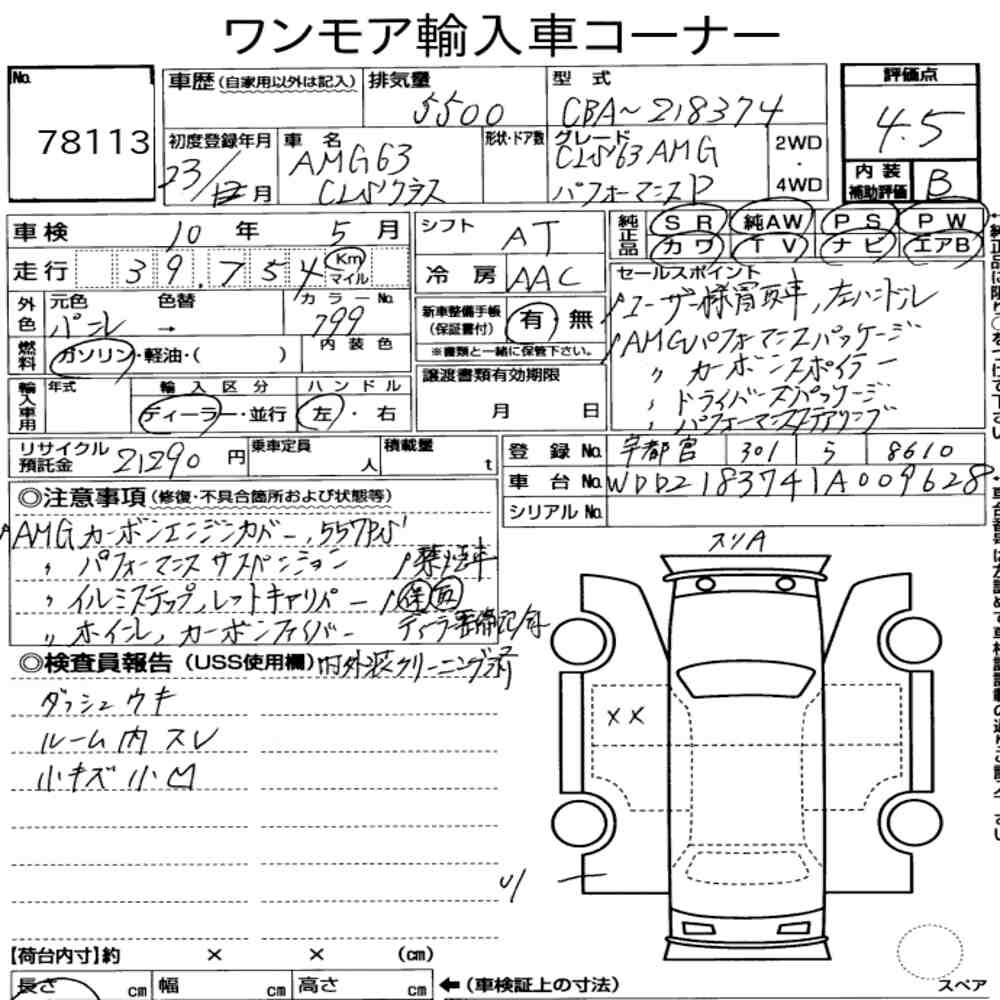 ワンモア輸入車コーナー
No. 78113
車歴(自家用以外は記入) 排気量 5500 型式 CBA~218374 評価点 4.5
初度登録年月 23/12月 車名 AMG63 CLSクラス 形状・ドア数 グレード CLS63 AMG パフォーマンスP 2WD・4WD
内装補助評価 B
車検 10年 5月 シフト AT 純正品 SR 純AW PS PW
走行 39,754 Km マイル 冷房 AAC カワ TV ナビ エアB
外色 元色 パール 色替 → カラーNo. 799 内装色
新車整備手帳(保証書付) 有 無
※書類と一緒に保管下さい。
セールスポイント
ユーザー様買取車,左ハンドル
AMGパフォーマンスパッケージ
〃 カーボンスポイラー
〃 ドライバーズパッケージ
〃 パフォーマンスステアリング
燃料 ガソリン・軽油・( )
譲渡書類有効期限 月 日
輸入車用 年式 輸入区分 ディーラー・並行 ハンドル 左・右
リサイクル預託金 21290円 乗車定員 人 積載量 t
登録No. 宇都宮 301 5 8610
車台No. WDD2183741A009628
シリアルNo.
◎注意事項(修復・不具合箇所および状態等)
AMGカーボンエンジンカバー,557PS
〃 パフォーマンスサスペンション 禁煙車
〃 イルミステップ,レッドキャリパー 保 取
〃 ホイール,カーボンファイバー ディーラー整備記/有
◎検査員報告(USS使用欄) 内外装クリーニング済
ダッシュウキ
ルーム内スレ
小キズ小凹
スリA
XX
【荷台内寸】約 × × (cm)
長さ cm 幅 cm 高さ cm ←(車検証上の寸法)
スペア